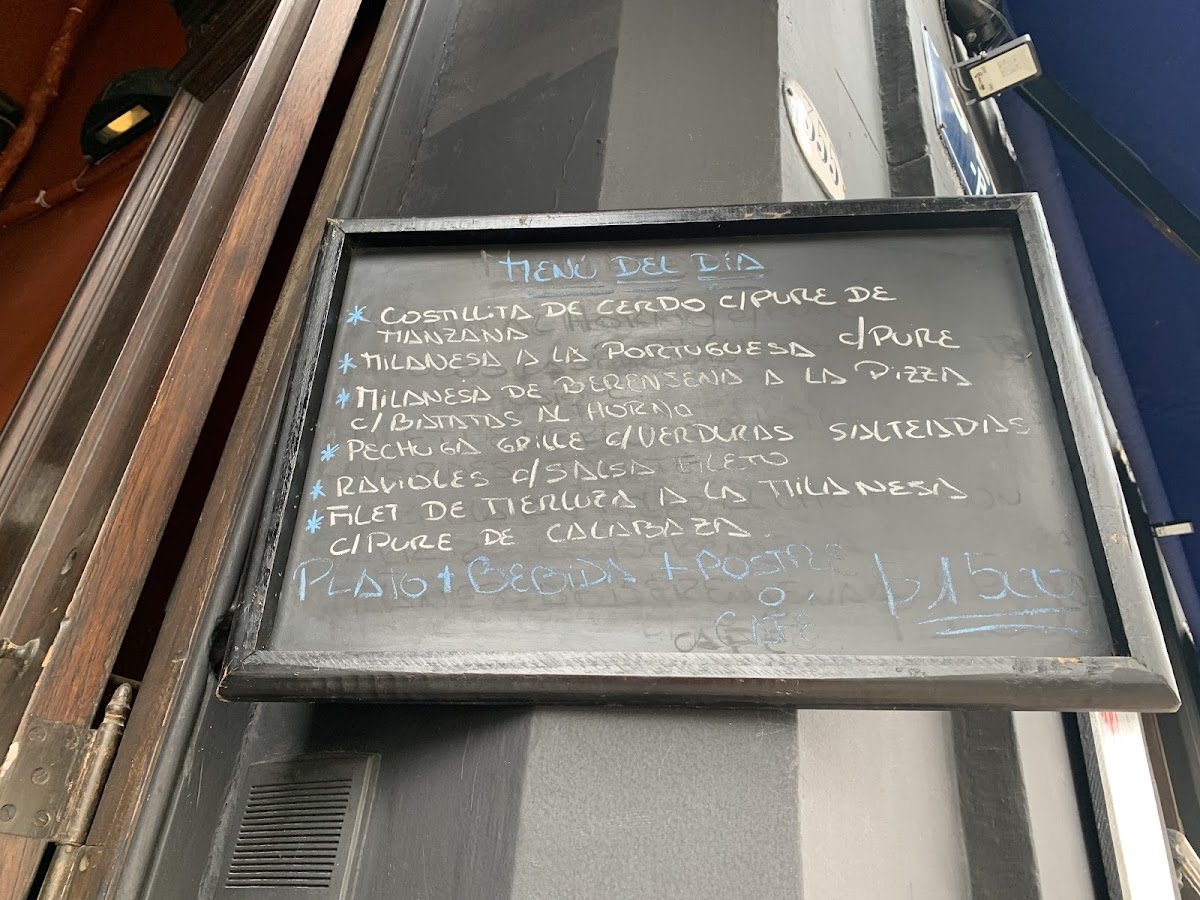 MENÚ DEL DÍA
* COSTILLITA DE CERDO C/PURE DE
MANZANA
* MILANESA A LA PORTUGUESA C/PURE
* MILANESA DE BERENJENA A LA PIZZA
C/BATATAS AL HORNO
* PECHUGA GRILLE C/VERDURAS SALTEADAS
* RAVIOLES C/SALSA FILETO
* FILET DE MERLUZA A LA MILANESA
C/PURE DE CALABAZA.
PLATO + BEBIDA + POSTRE
O
CAFÉ
$1500